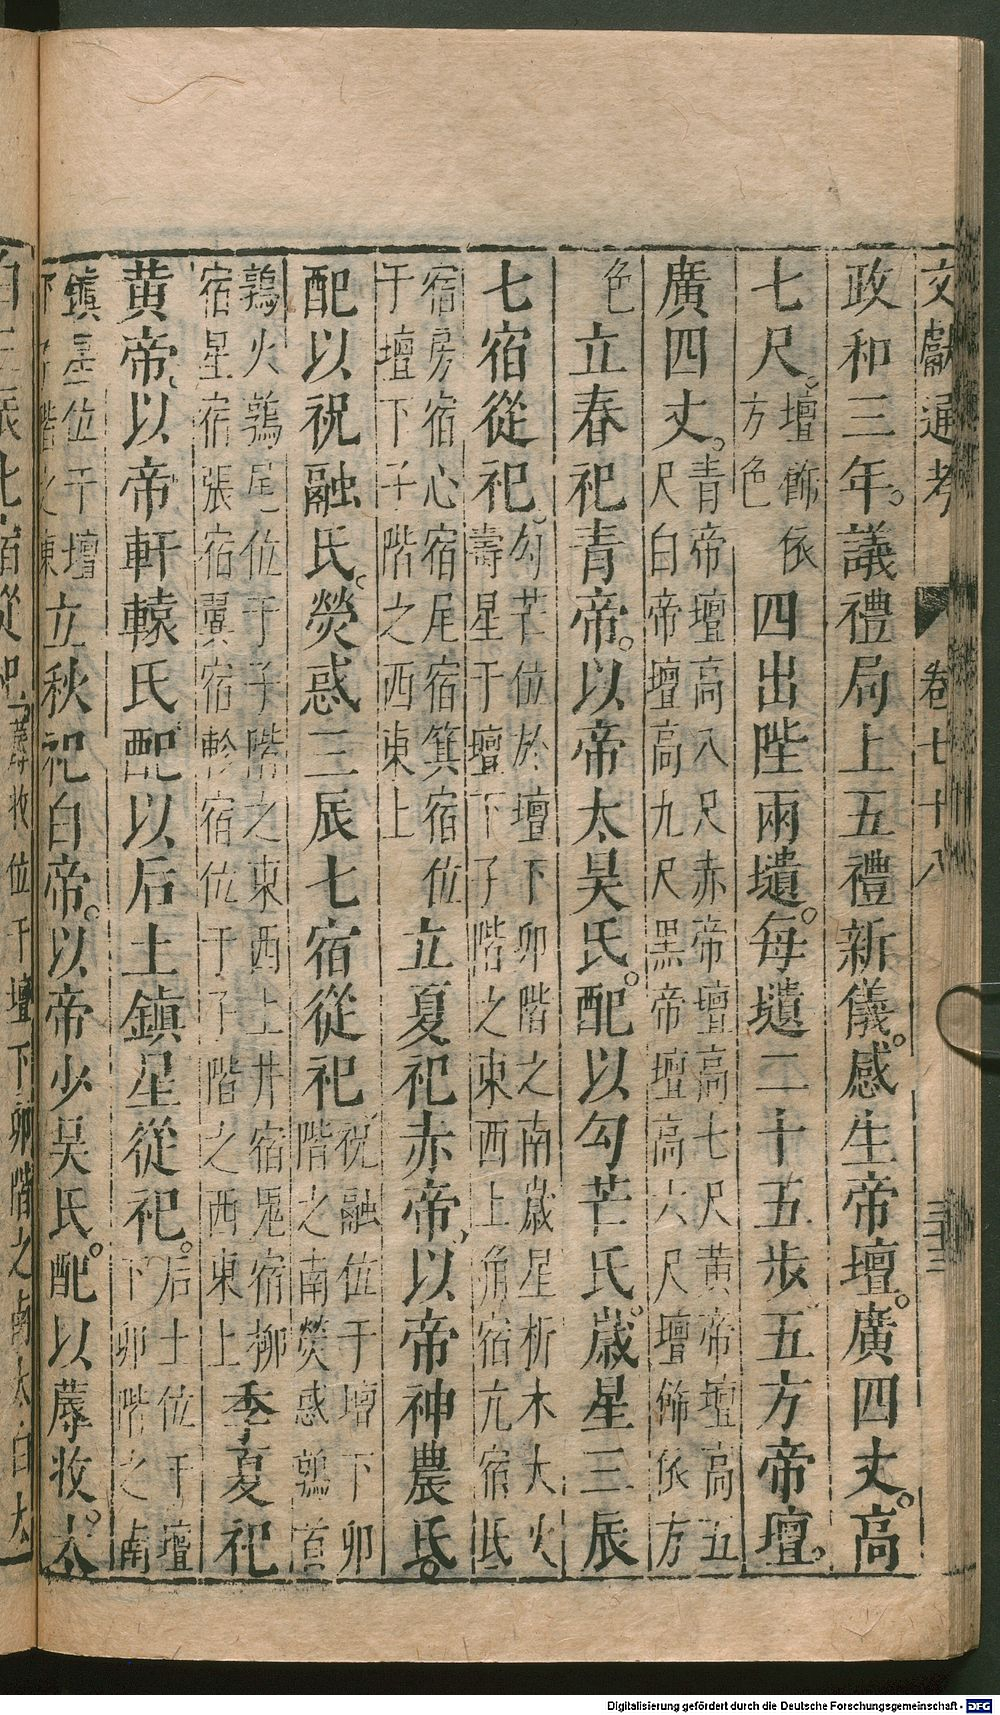 文獻通考 卷七十八
政和三年。議禮局上五禮新儀。感生帝壇。廣四丈。高
七尺。壇飾依方色四出陛兩壝。每壝二十五步五方帝壇。
廣四丈。青帝壇高八尺赤帝壇高七尺黃帝壇高五尺白帝壇高九尺黑帝壇高六尺壇飾依方
色立春祀青帝。以帝太昊氏。配以勾芒氏。歲星三辰
七宿從祀。勾芒位於壇下卯階之南歲星析木大火壽星于壇下子階之東西上角宿亢宿氐
宿房宿心宿尾宿箕宿位于壇下子階之西東上立夏祀赤帝、以帝神農氏。
配以祝融氏。熒惑三辰七宿從祀祝融位于壇下卯階之南熒惑鶉首
鶉火鶉尾位于子階之東西上井宿鬼宿柳宿星宿張宿翼宿軫宿位于子階之西東上季夏祀
黃帝、以帝軒轅氏配以后土鎮星從祀。后土位于壇下卯階之南
鎮星位于壇下子階之東立秋祀白帝。以帝少昊氏。配以蓐收。太
白三辰七宿從祀蓐收位于壇下卯階之南太白大
Digitalisierung gefördert durch die Deutsche Forschungsgemeinschaft - DFG